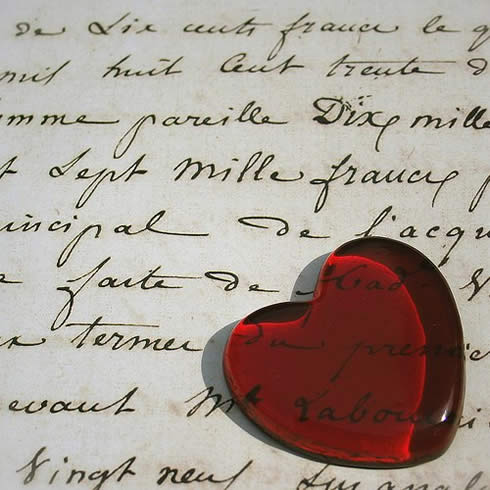 de Six cents francs le
mil huit Cent trente
omme pareille Dix mille
t Sept Mille francs
incipal de l'acqu
faite de Mad
termes du premie
evant Me Labou
Vingt neuf